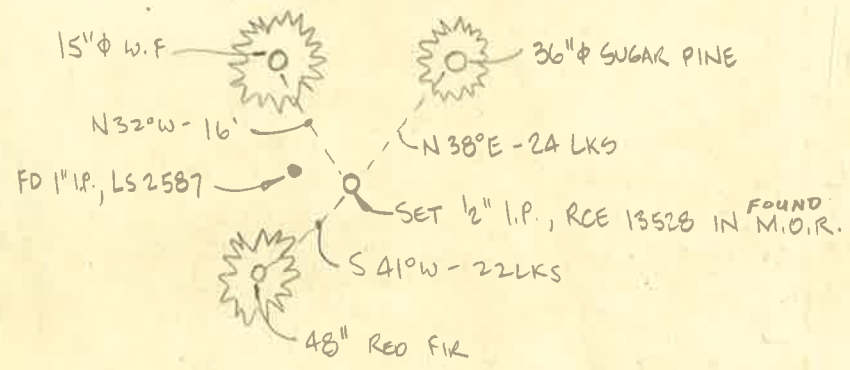 15"Φ W.F
36"Φ SUGAR PINE
N32°W - 16'
N 38°E - 24 LKS
FD 1" I.P., LS 2587
SET 1/2" I.P., RCE 13528 IN FOUND M.O.R.
S 41°W - 22LKS
48" RED FIR